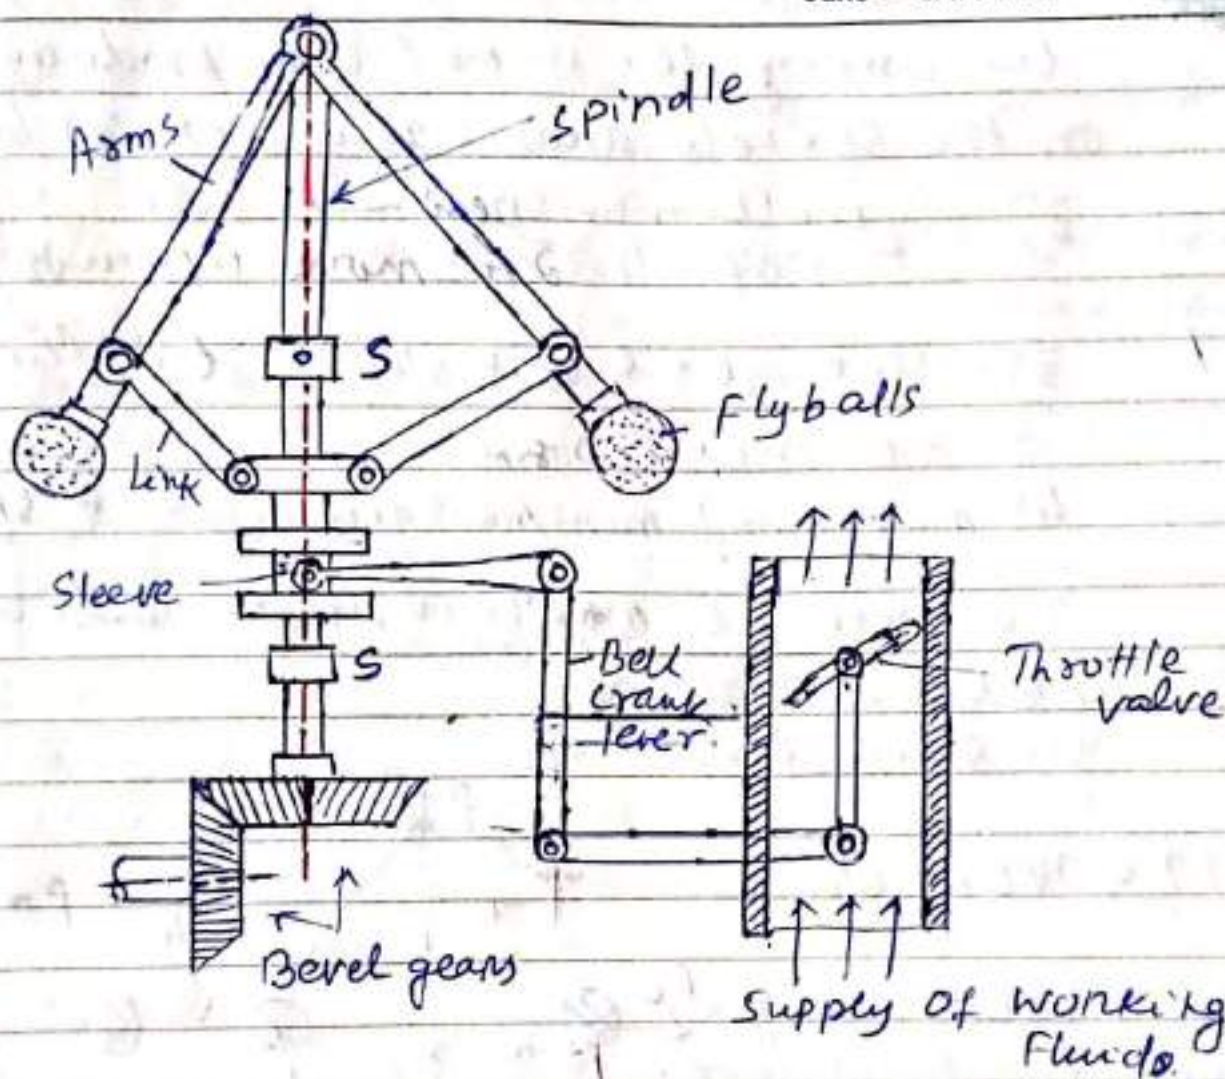 Arms
Spindle
S
Flyballs
Link
Sleeve
S
Bell
crank
lever.
Throttle
valve
Bevel gears
Supply of working
Fluids.